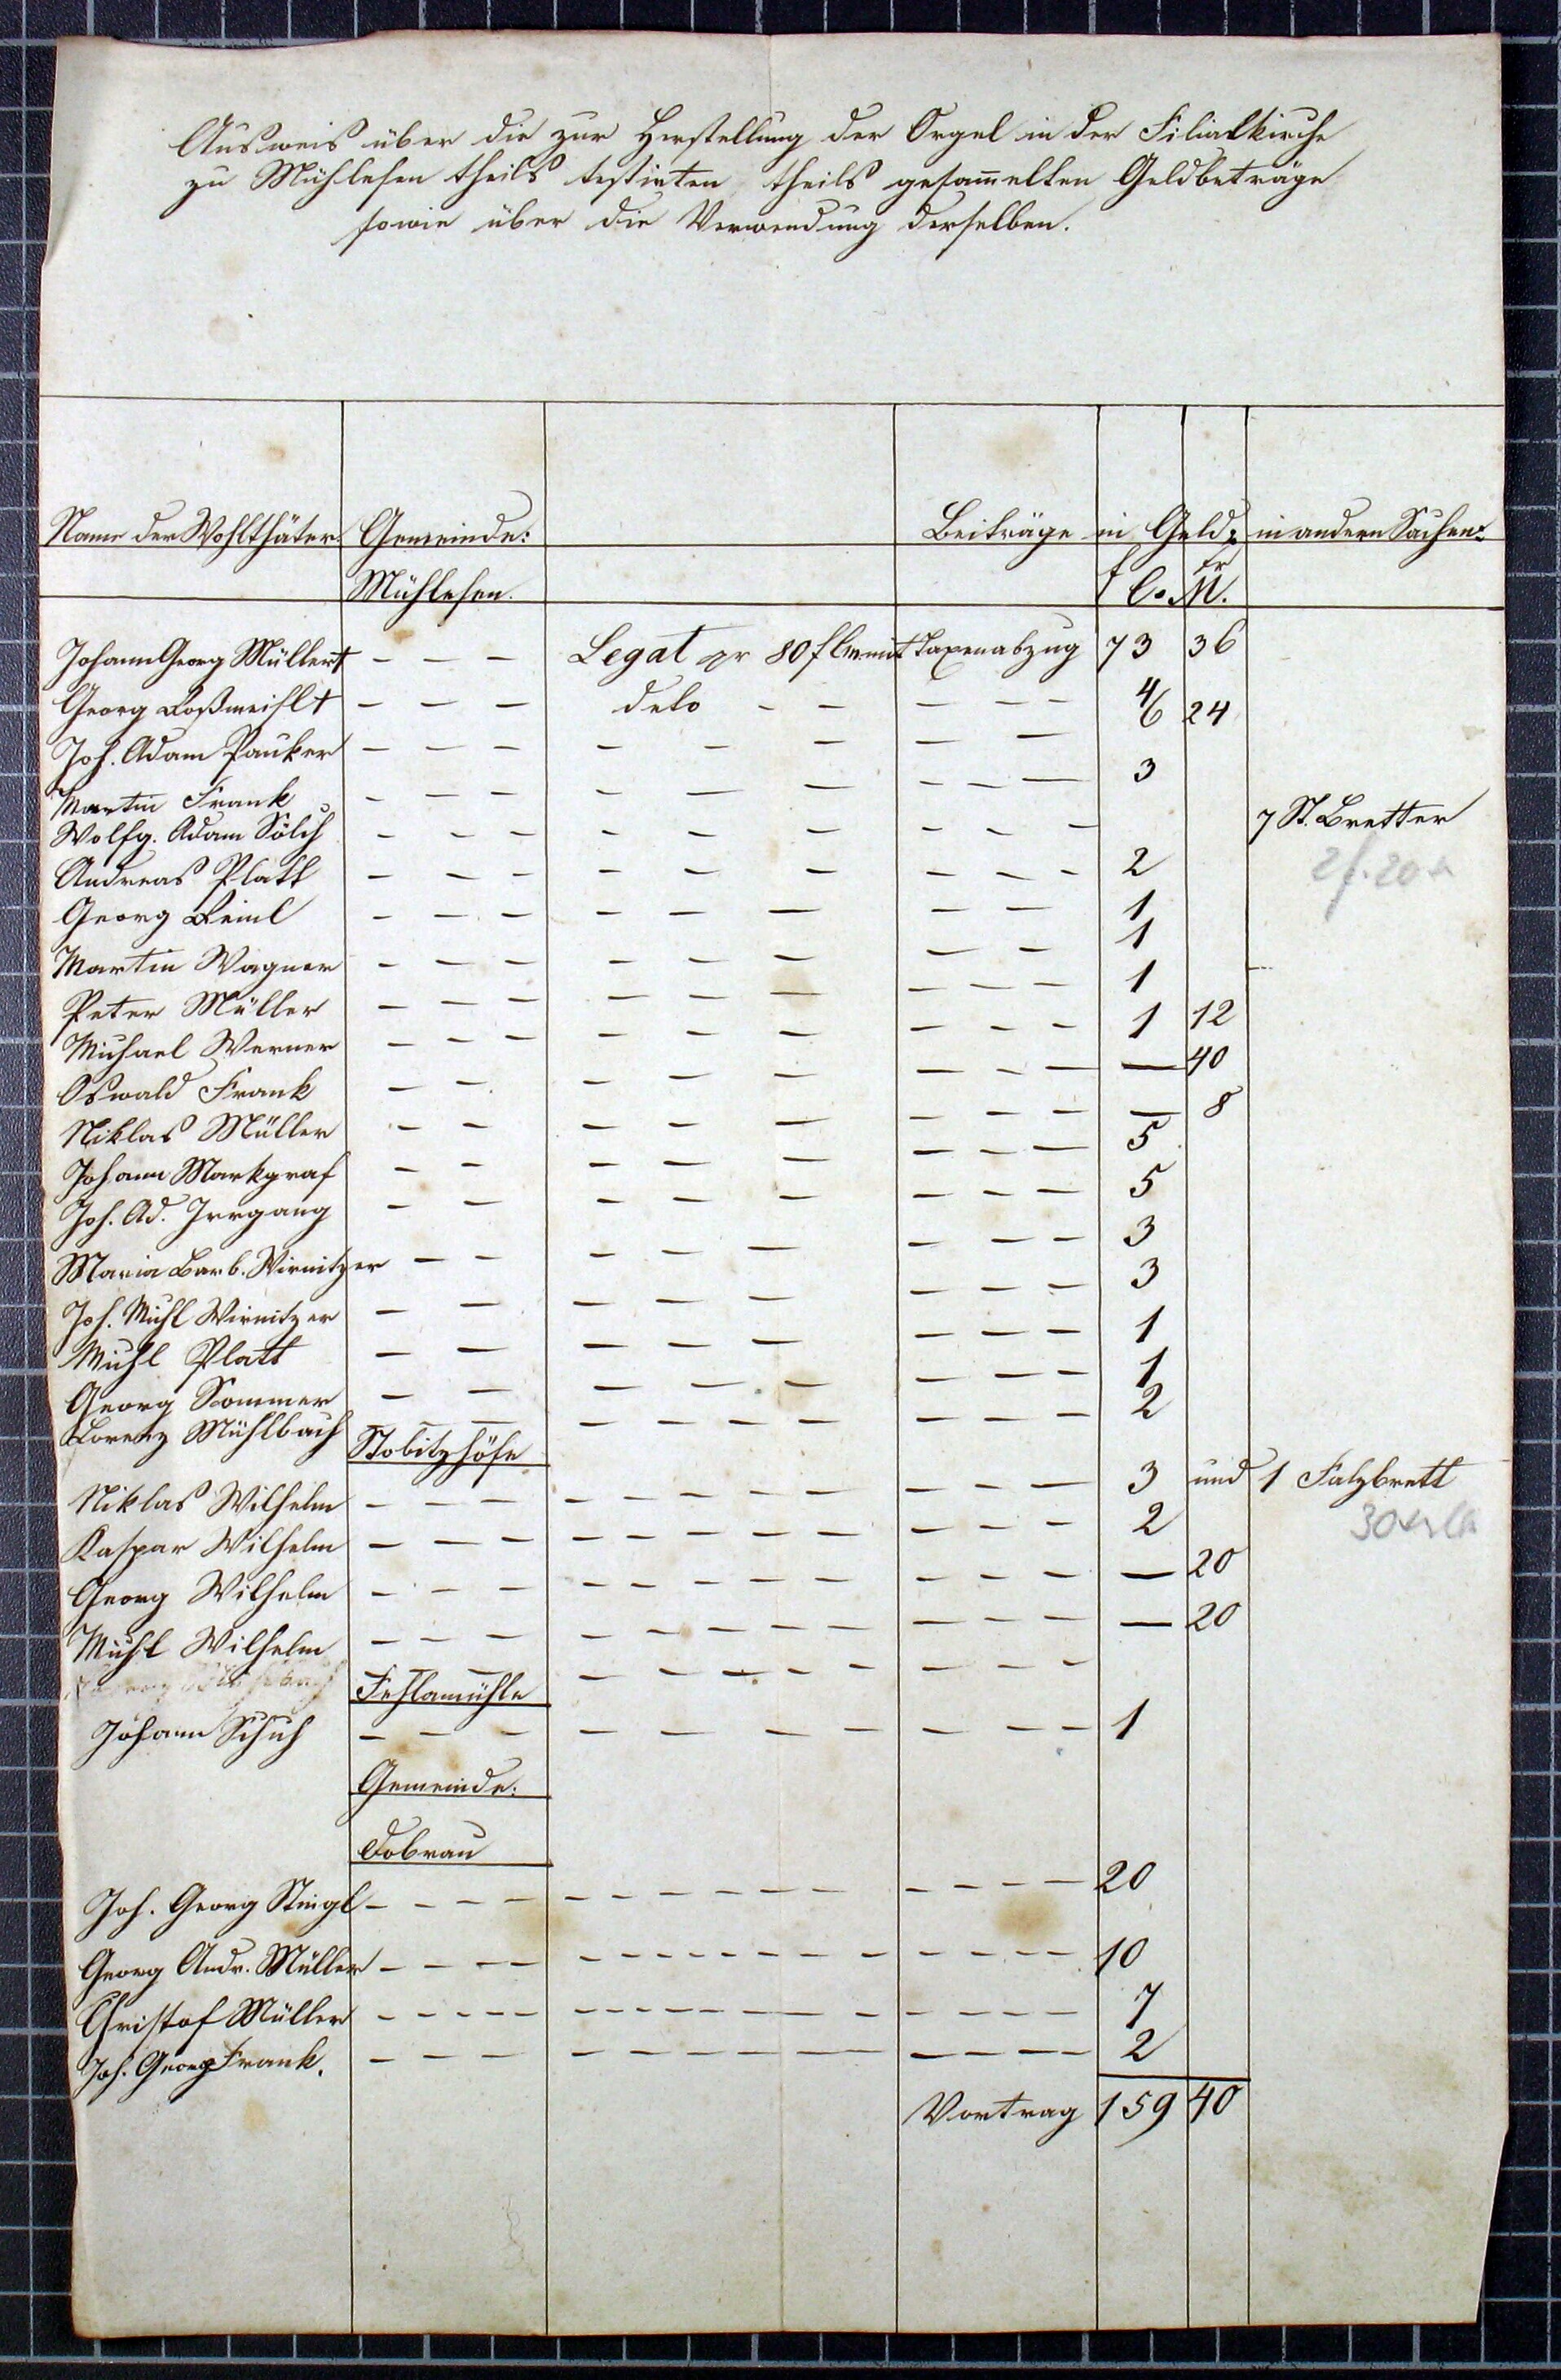 Ausweis über die zur Herstellung der Orgel in der Filialkirche
zu Mühlesen theils testirten theils gesam̄elten Geldbeträge
sowie über die Verwendung derselben.
Name der Wohlthäter Gemeinde: Beiträge in Geld: in andern Sachen:
Mühlesen. f C. M. xr
Johann Georg Müller † – – – Legat pr 80 f Cm mit Taxenabzug 73 36
Georg Roßmeisl † – – – deto – – – – – 4/6 24
Joh. Adam Pauker – – – – – – – – – 3
Martin Frank – – – – – – – – – 7 St. Bretter
Wolfg. Adam Sölch – – – – – – – – – 2 2 f. 20 x
Andreas Platt – – – – – – – – – 1
Georg Reinl – – – – – – – – 1
Martin Wagner – – – – – – – – 1
Peter Müller – – – – – – – – – 1 12
Michael Werner – – – – – – – – – — 40
Oswald Frank – – – – – – – – — 8
Niklas Müller – – – – – – – – 5
Johann Markgraf – – – – – – – – 5
Joh. Ad. Irrgang – – – – – – – – 3
Maria Barb. Wirnitzer – – – – – – – – 3
Joh. Michl Wirnitzer – – – – – – – – 1
Michl Platt – – – – – – – – 1
Georg Sommer – – – – – – – – 2
Lorenz Mühlbach – – – – – – – – –
Stobitzhöfe
Niklas Wilhelm – – – – – – – – – 3 und 1 Falzbrett
Kaspar Wilhelm – – – – – – – – – 2 30 xr
Georg Wilhelm – – – – – – – – – — 20
Michl Wilhelm – – – – – – – – – — 20
Fehlamühle
Johann Schuh – – – – – – – – – 1
Gemeinde:
Dobrau
Joh. Georg Stingl – – – – – – – – – – 20
Georg Andr. Müller – – – – – – – – – – 10
Christof Müller – – – – – – – – – – 7
Joh. Georg Frank. – – – – – – – – – – 2
Vortrag 159 40